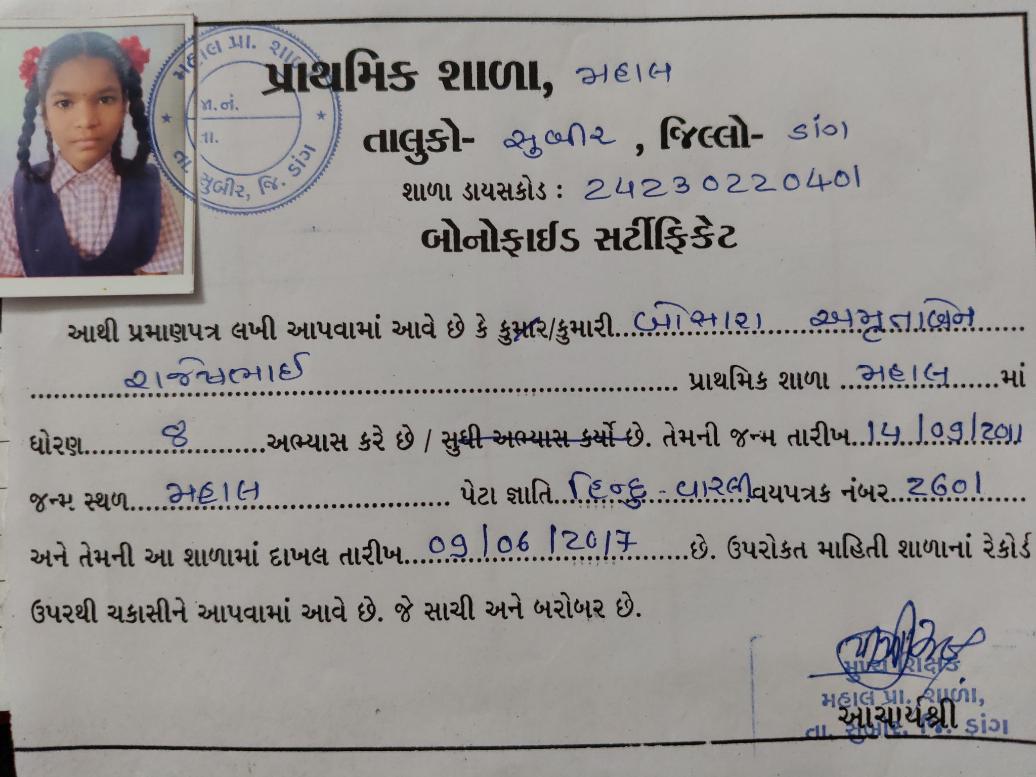 મહાલ પ્રા. શાળા
જા.નં.
તા.
તા. સુબીર, જિ. ડાંગ
પ્રાથમિક શાળા, મહાલ
તાલુકો- સુબીર , જિલ્લો- ડાંગ
શાળા ડાયસકોડ : 24230220401
બોનોફાઈડ સર્ટીફિકેટ
આથી પ્રમાણપત્ર લખી આપવામાં આવે છે કે કુમાર/કુમારી...બોસારા અમૃતાબેન
રાજેષભાઈ પ્રાથમિક શાળા ...મહાલ......માં
ધોરણ.......8.......અભ્યાસ કરે છે / સુધી અભ્યાસ કર્યો છે. તેમની જન્મ તારીખ...14/09/2011
જન્મ સ્થળ....મહાલ.................... પેટા જ્ઞાતિ..હિન્દુ - વારલી વયપત્રક નંબર..2601
અને તેમની આ શાળામાં દાખલ તારીખ...09/06/2017.......છે. ઉપરોકત માહિતી શાળાનાં રેકોર્ડ
ઉપરથી ચકાસીને આપવામાં આવે છે. જે સાચી અને બરોબર છે.
મુખ્ય શિક્ષક
મહાલ પ્રા. શાળા,
આચાર્યશ્રી
તા. સુબીર, જિ. ડાંગ